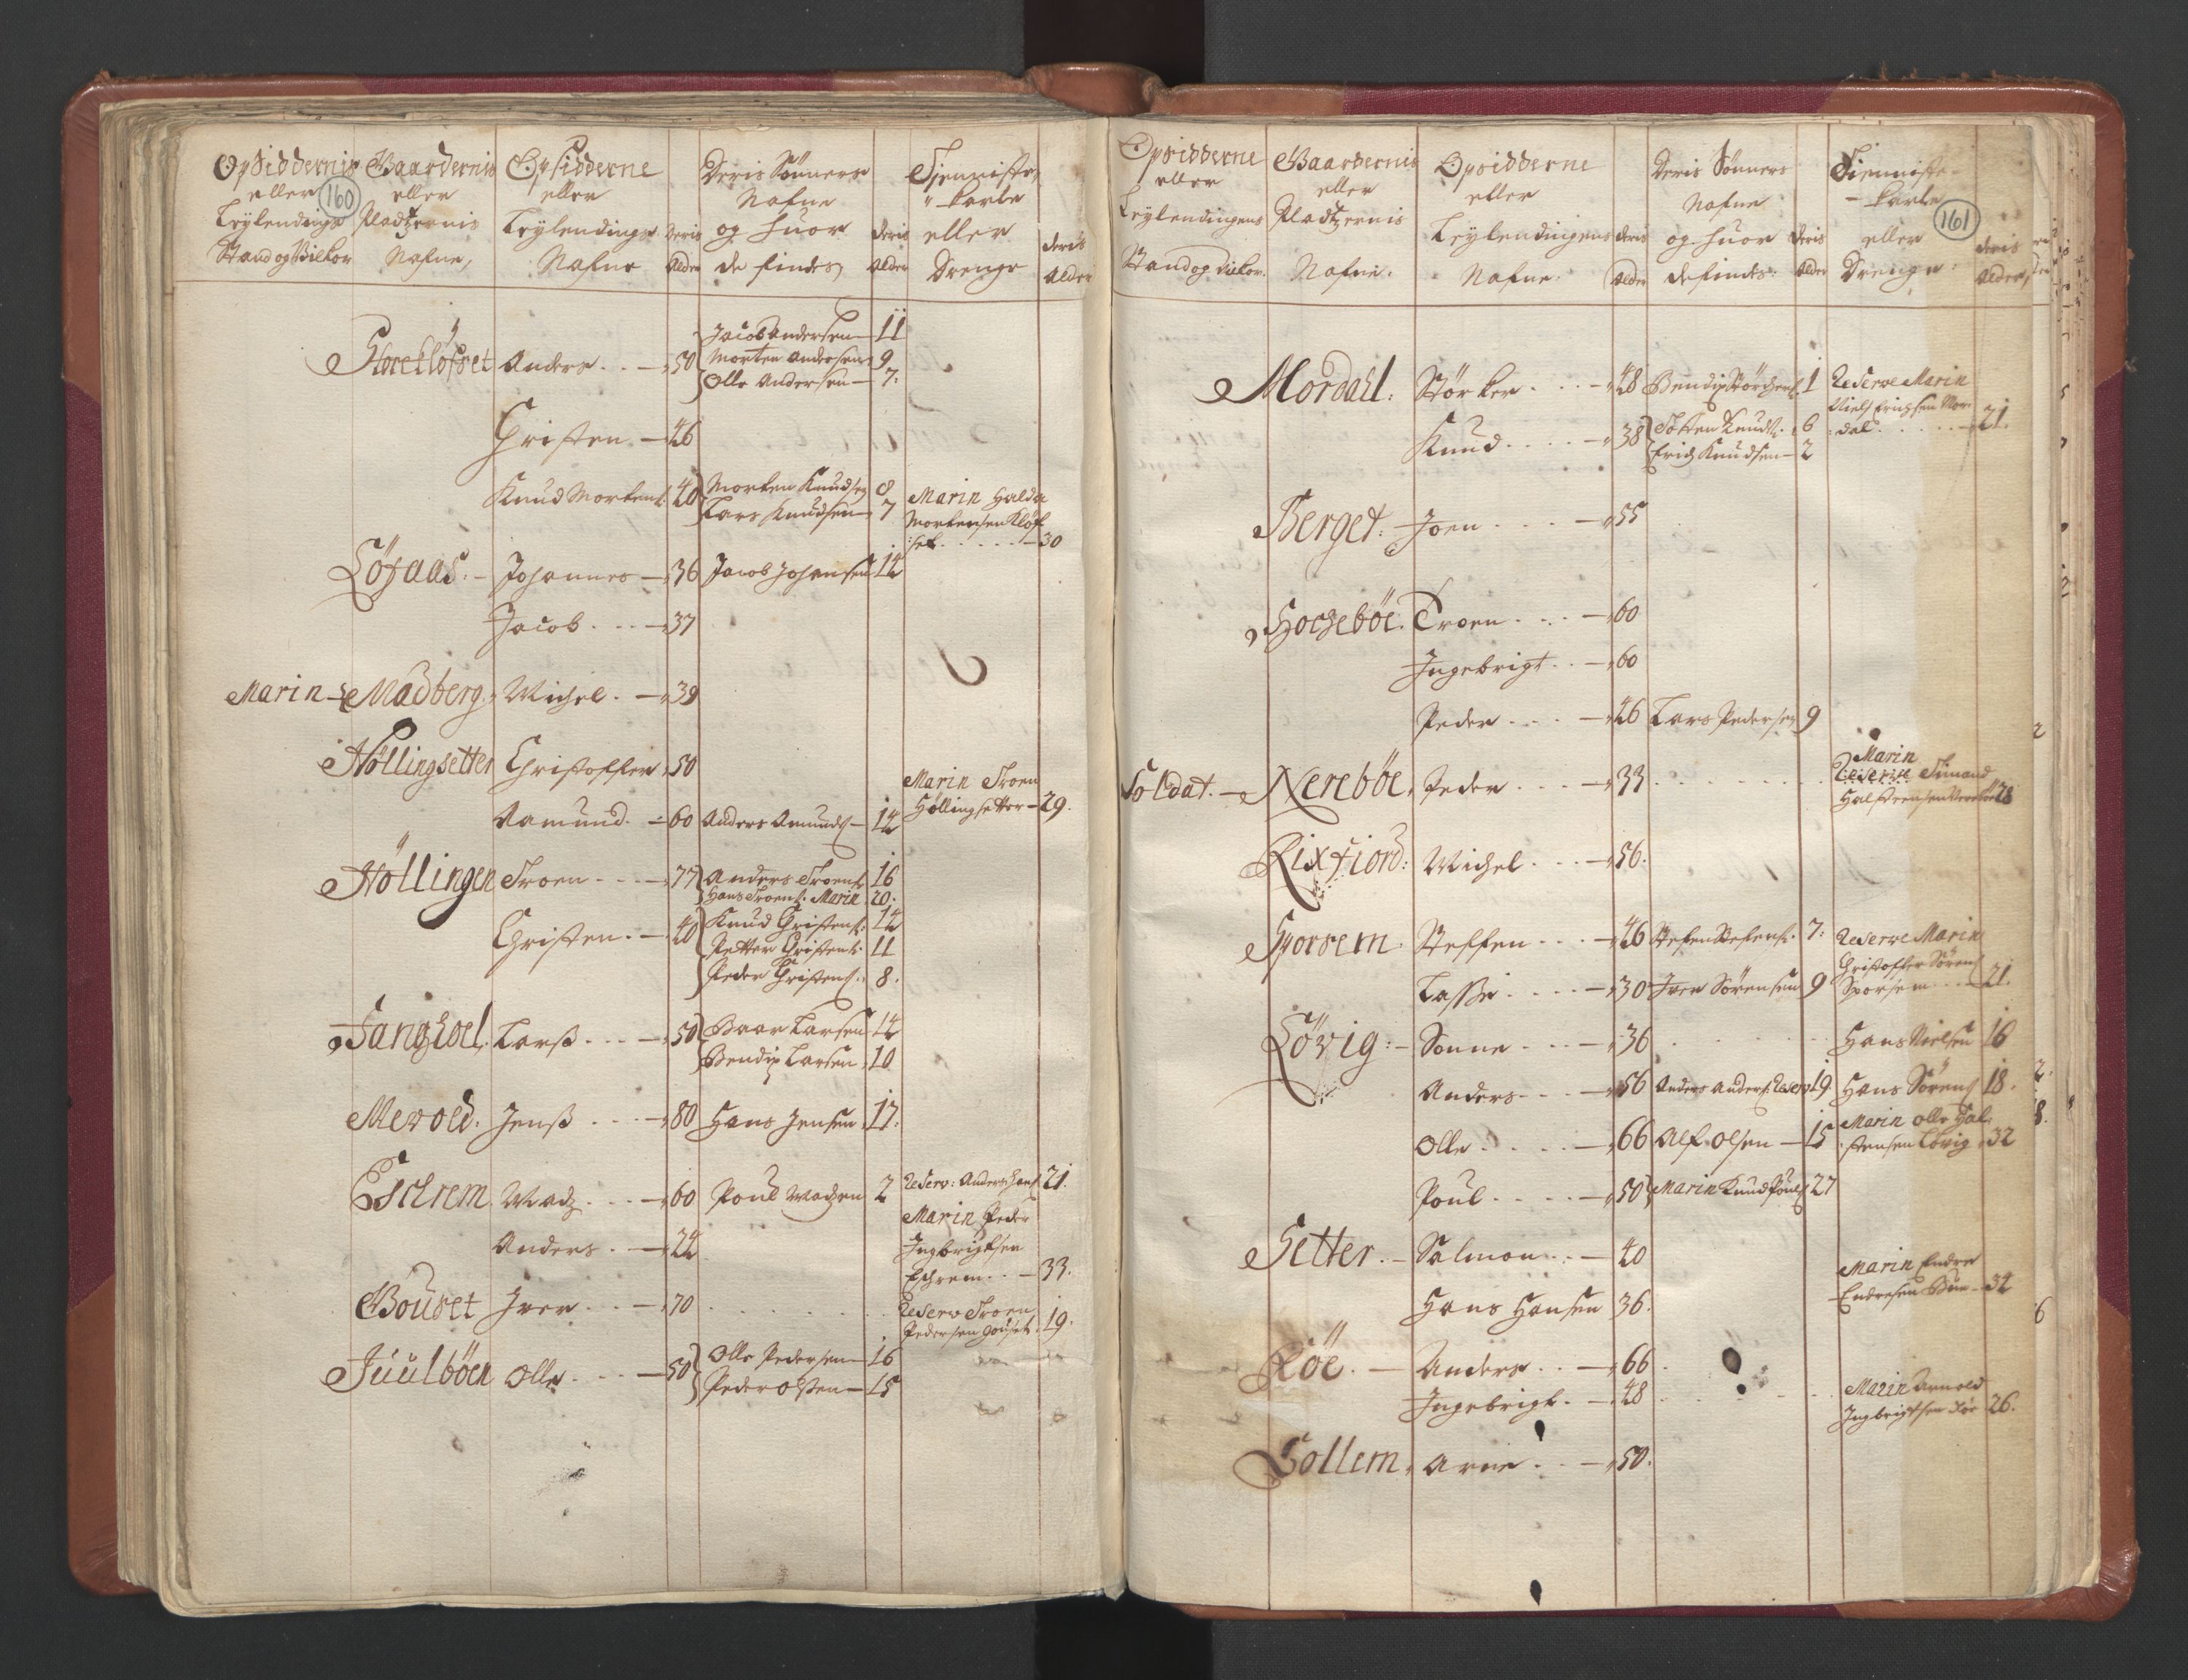 Opsiddernis eller Leylendings Stand og Vilkor
160
Gaardernis eller Pladtzernis Nafne,
Opsidderne eller Leylendings Nafne
deris Alder
Deris Sönners Nafne og huor de findes,
deris Alder
Tienniste karle eller Drenge
deris Alder
Storeklöfset Anders 50 Jacob Andersen 11
Morten Andersen 9
Olle Andersen 7.
Christen 46
Knud Mortens. 40 Morten Knudsen 8
Lars Knudsen 7 Marin Halda Mortensen Klöfset 30
Löfaas. Johannes 36 Jacob Johansen 14
Jacob 37
Marin Madberg. Michel 39
Höllingsetter Christoffer 50
Marin Troen Höllingsetter 29.
Aamund. 60 Anders Amunds. 14
Höllingen Troen 77 Anders Troens. 16
Hans Troens. Marin 20.
Christen 40 Knud Christens. 14
Petter Christens. 11
Peder Christens. 8.
Tanghoel. Larss 50 Baar Larsen 14
Bendix Larsen 10
Mevold. Jenss 80 Hans Jensen 17.
Eschrem. Madz 60 Poul Madzen 2 Reserv: Anders Hans. 21.
Anders 24 Marin Peder Ingbrigtsen Eschrem 33.
Gouset Iver 70 Reserv Troen Pedersen Gouset 19.
Juulböen Olle 50 Olle Pedersen 16
Peder Olsen 15
Opsidderne eller Leylendingens Stand og Vilkor.
Gaardernis eller Pladtzernis Nafne.
Opsidderne eller Leylendingens Nafne.
deris Alder
Deris Sönners Nafne og huor de findes.
deris Alder
Tienniste karle eller Drenge.
161
deris Alder,
Mordall. Störker 48 Bendix Störchers. 1 Reserve Marin Niels Erichsen Mordal 21.
Knud 38 Knuds. 6
Erich Knudsen 2
Berget. Joen 55
Hocheböe. Troen 60
Ingebrigt 60
Peder 46 Lars Pedersen 9
Soldat. Nereböe, Peder 33 Marin Reserve Simand 28
Rixfiord: Michel 56.
Sporsem. Steffen 46 Stefen Stefens. 7. Reserve Marin Christoffer Sörens. Sporsem 21.
Lasse 30 Iver Sörensen 9
Lövig. Sonne 36 Hans Nielsen 16
Anders 56 Anders Anders. Reserv 19. Hans Sörens. 18.
Olle 66 Alf Olsen 15 Marin Olle Halstensen Lövig 32
Poul 50 Marin Knud Pouls. 27
Setter. Salmon 40
Marin Endre Endresen 32
Hans Hansen 36.
Röe. Anders 66
Ingebrigt 48 Marin Arnold Ingbrigtsen Röe 26.
Sollem, Arne 50.